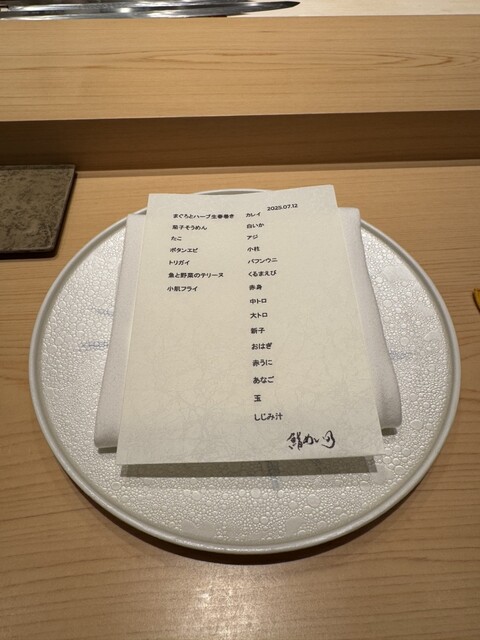 2025.07.12
まぐろとハーブ生春巻き
茄子そうめん
たこ
ボタンエビ
トリガイ
魚と野菜のテリーヌ
小肌フライ
カレイ
白いか
アジ
小柱
バフンウニ
くるまえび
赤身
中トロ
大トロ
新子
おはぎ
赤うに
あなご
玉
しじみ汁
鮨めい乃